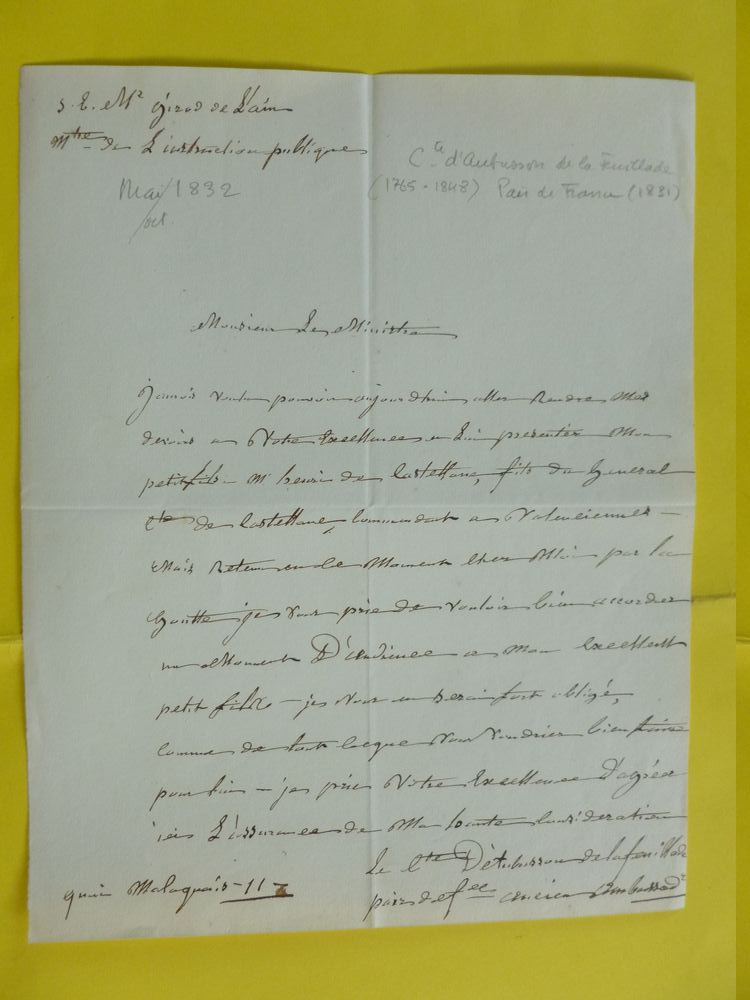 S. E. Mr Girod de L'ain
Mtre de L'instruction publique
Cte d'Aubusson de la Feuillade
Mai/1832
(1765-1848) Pair de France (1831)
oct
Monsieur Le Ministre
J'aurois voulu pouvoir aujourdhui aller Rendre Mes
devoirs a Votre Excellence en Lui presenter Mon
petit fils - Mr henri de Castellane, fils du General
Cte de Castellane, Commandant a Valenciennes -
Mais Retenu en ce Moment chez Moi par la
Goutte je vous prie de vouloir bien accorder
un Moment D'audience a Mon Excellent
petit fils - je vous en serai fort obligé,
comme de tout ce que vous voudrier bien faire
pour lui - je prie Votre Excellence D'agréer
ici L'assurance de Ma haute Consideration
Le Cte D'Aubusson de la feuillade
quai Malaquais - 11
pair de fce ancien Ambassadr